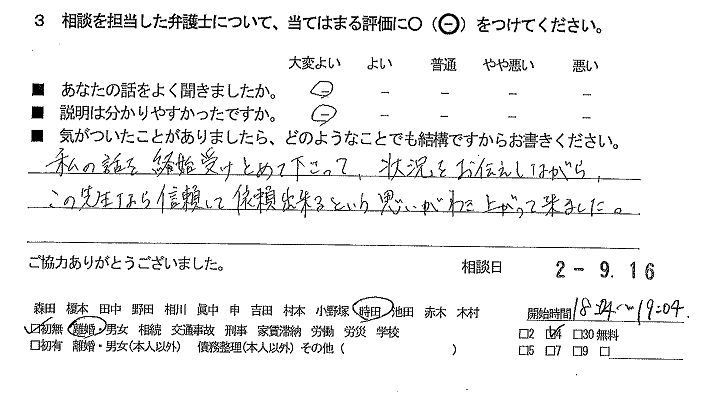 3 相談を担当した弁護士について、当てはまる評価に○（⊖）をつけてください。
大変よい よい 普通 やや悪い 悪い
■ あなたの話をよく聞きましたか。 － － － － －
■ 説明は分かりやすかったですか。 － － － － －
■ 気がついたことがありましたら、どのようなことでも結構ですからお書きください。
私の話を終始受けとめて下さって、状況をお伝えしながら、
この先生なら信頼して依頼出来るという思いがわき上がって来ました。
ご協力ありがとうございました。 相談日 2-9.16
森田 榎本 田中 野田 相川 眞中 申 吉田 村本 小野塚 時田 池田 赤木 木村 開始時間 18:04〜19:04.
□初無 離婚・男女 相続 交通事故 刑事 家賃滞納 労働 労災 学校 □2 □4 □30無料
□初有 離婚・男女(本人以外) 債務整理(本人以外) その他 ( ) □5 □7 □9 □